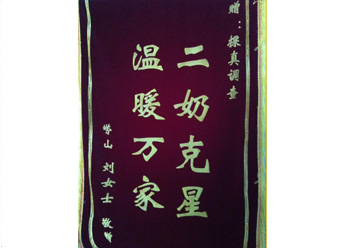 赠：探真调查
二奶克星
温暖万家
唐山 刘女士 敬赠